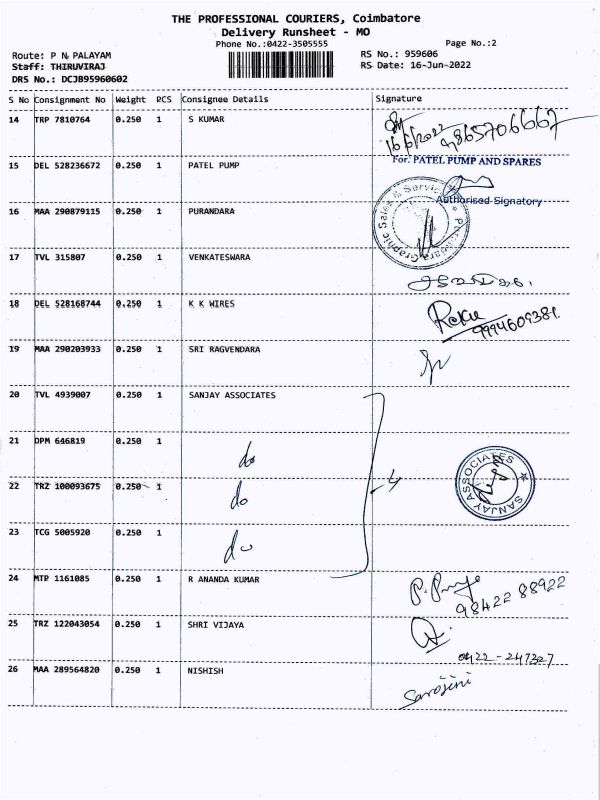 THE PROFESSIONAL COURIERS, Coimbatore
Delivery Runsheet - MO
Phone No.:0422-3505555
Page No.:2
Route: P N PALAYAM
RS No.: 959606
Staff: THIRUVIRAJ
RS Date: 16-Jun-2022
DRS No.: DCJB95960602
S No Consignment No Weight PCS Consignee Details Signature
14 TRP 7810764 0.250 1 S KUMAR
16/6/2022 9865706667
For. PATEL PUMP AND SPARES
15 DEL 528236672 0.250 1 PATEL PUMP
Authorised Signatory
16 MAA 290879115 0.250 1 PURANDARA
Purandara Graphic Sales & Service
17 TVL 315807 0.250 1 VENKATESWARA
18 DEL 528168744 0.250 1 K K WIRES
9994609381
19 MAA 290203933 0.250 1 SRI RAGVENDARA
20 TVL 4939007 0.250 1 SANJAY ASSOCIATES
21 DPM 646819 0.250 1 do
22 TRZ 100093675 0.250 1 do 4
SANJAY ASSOCIATES
23 TCG 5005920 0.250 1 do
24 MTP 1161085 0.250 1 R ANANDA KUMAR
98422 88922
25 TRZ 122043054 0.250 1 SHRI VIJAYA
0422-247327
26 MAA 289564820 0.250 1 NISHISH Sarojini